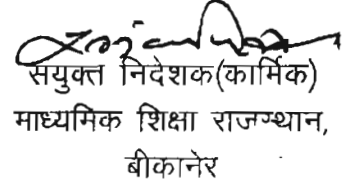 सयुक्त निदेशक(कार्मिक)
माध्यमिक शिक्षा राजग्स्थान,
बीकानेर